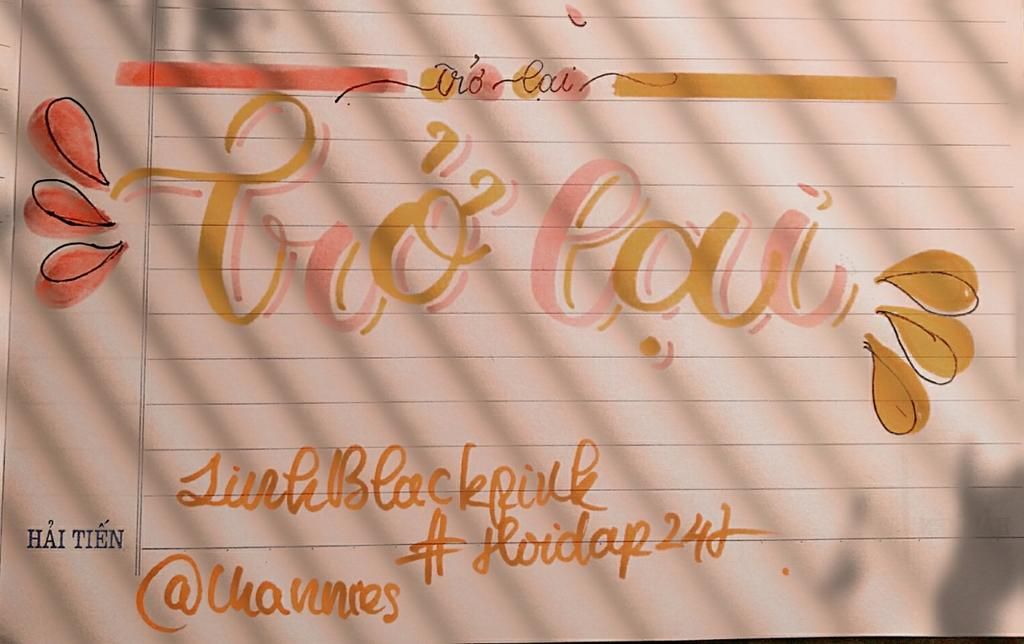 Trở lại
Trở lại
LinhBlackpink
#Hoidap247
HẢI TIẾN
@Channres